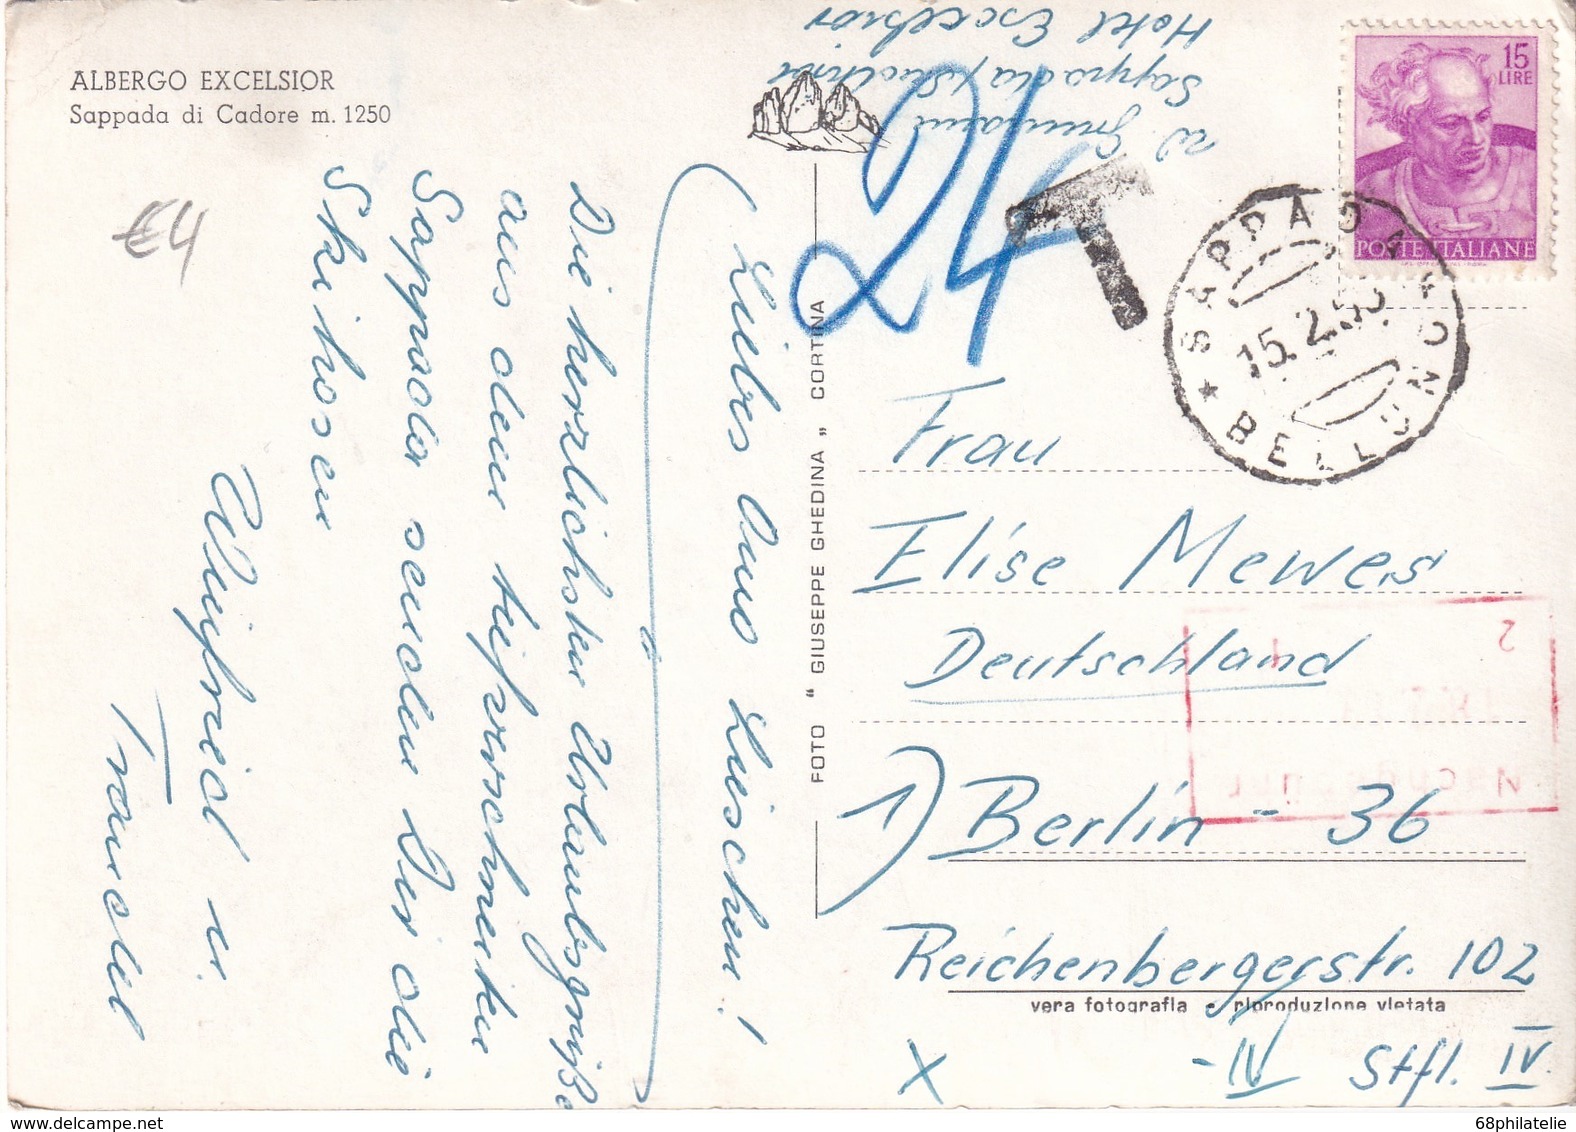 ALBERGO EXCELSIOR
Sappada di Cadore m. 1250
€4
Liebes Omo Lieschen!
Die herzlichsten Urlaubsgrüße
aus dem tiefverschneiten
Sappada senden Dir die
Skihasen
Wilfried u.
Traudel
FOTO " GIUSEPPE GHEDINA „ CORTINA
Sappada
Hotel Excelsior
24
T
15 LIRE
POSTE ITALIANE
SAPPADA
15.2.
BELLUNO
Frau
Elise Mewes
Deutschland
1) Berlin - 36
Reichenbergerstr. 102
vera fotografia - riproduzione vietata
X
- IV
Stfl. IV.
2
Nachgebühr
68philatelie